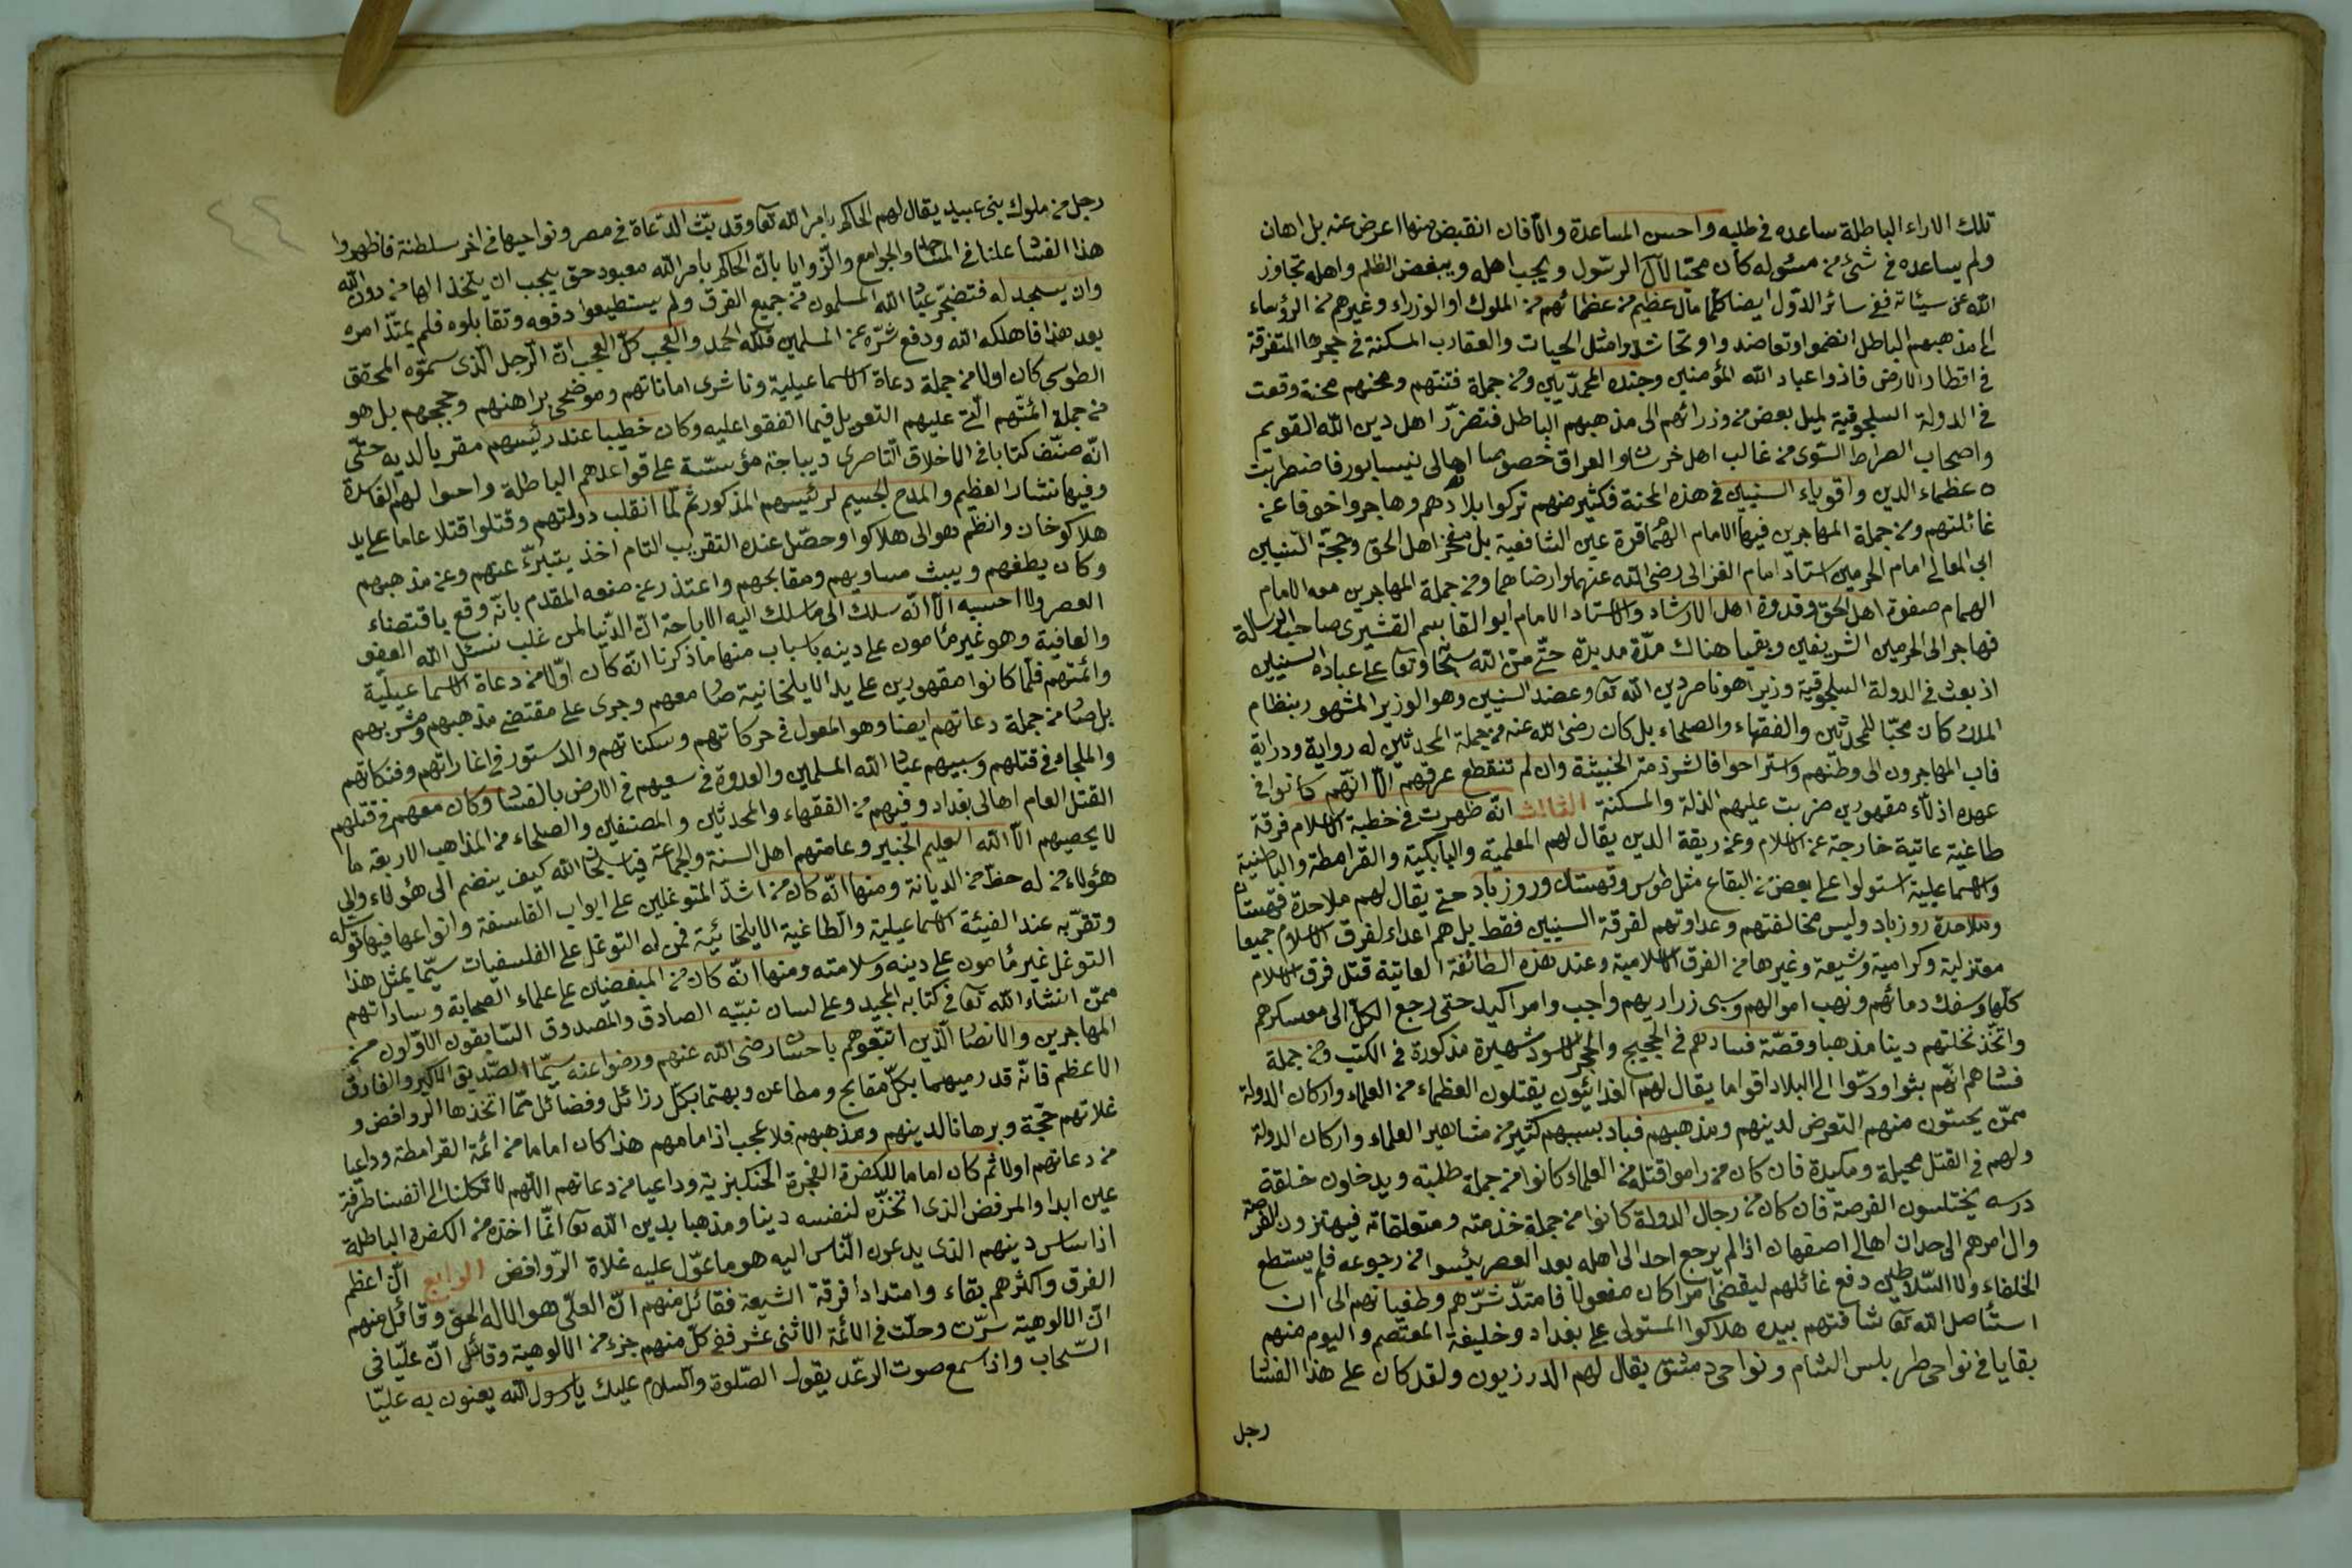 تلك الاراء الباطلة ساعده في طلبه واحسن المساعدة والآفان انقبض منها اعرض عنه بل اهان
ولم يساعده في شئ من مسئوله كان محبا لآل الرسول ويحب اهله ويبغض الظلم واهله تجاوز
الله عن سيئاته ففي سائر الدول ايضا كلما مال عظيم من عظمائهم من الملوك او الوزراء وغيرهم من الرؤساء
الى مذهبهم الباطل انضموا وتعاضدوا وتحاشدوا مثل الحيات والعقارب المسكنة في حجرها المتفرقة
في اقطار الارض فاذوا عباد الله المؤمنين وجنده المحمديين ومن جملة فتنتهم ومحنهم محنة وقعت
في الدولة السلجوقية لميل بعض من وزرائهم الى مذهبهم الباطل فتضرر اهل دين الله القويم
واصحاب الصراط السوى من غالب اهل خرسان والعراق خصوصا اهالى نيسابور فاضطربت
عظماء الدين واقوياء السنيين في هذه المحنة فكثير منهم تركوا بلادهم وهاجروا خوفا عن
غائلتهم ومن جملة المهاجرين فيها الامام الهمام قرة عين الشافعية بل مفخر اهل الحق وحجة السنيين
ابى المعالى امام الحرمين استاد امام الغزالى رضى الله عنهما وارضاهما ومن جملة المهاجرين معه الامام
الهمام صفوة اهل الحق وقدوة اهل الارشاد والاستاد الامام ابو القاسم القشيرى صاحب الرسالة
فهاجر الى الحرمين الشريفين وبقيا هناك مدة مديدة حتى من الله سبحانه وتعا على عباده السنيين
اذ بعث في الدولة السلجوقية وزيرا هو ناصر دين الله تعا وعضد السنيين وهو الوزير المشهور بنظام
الملك كان محبا للمحدثين والفقهاء والصلحاء بل كان رضى الله عنه من جملة المحدثين له رواية ودراية
فاب المهاجرون الى وطنهم واستراحوا فالشرذمة الخبيثة وان لم تنقطع عرقهم الا انهم كانوا في
عهده اذلاء مقهورين ضربت عليهم الذلة والمسكنة الثالث انه ظهرت في خطبة الاسلام فرقة
طاغية عاتية خارجة عن الاسلام وعن ربقة الدين يقال لهم المعلمية والبابكية والقرامطة والباطنية
والاسماعيلية استولوا على بعض من البقاع مثل طوس وقهستان وروزباد حتى يقال لهم ملاحدة قهستان
وملاحدة روزباد وليس مخالفتهم وعداوتهم لفرقة السنيين فقط بل هم اعداء لفرق الاسلام جميعا
معتزلية وكرامية وشيعة وغيرها من الفرق الاسلامية وعند هذه الطائفة العاتية قتل فرق الاسلام
كلها وسفك دمائهم ونهب اموالهم وسبى زراريهم واجب وامر اكيد حتى رجع الكل الى معسكرهم
واتخذ نحلتهم دينا مذهبا وقصة فسادهم في الحجيج والحجر الاسود شهيرة مذكورة في الكتب ومن جملة
فسادهم انهم بثوا ودسوا الى البلاد اقواما يقال لهم الفدائيون يقتلون العظماء من العلماء واركان الدولة
ممن يحسون منهم التعرض لدينهم ومذهبهم فباد بسببهم كثير من مشاهير العلماء واركان الدولة
ولهم في القتل محيلة ومكيدة فان كان من راموا قتله من العلماء كانوا من جملة طلبته ويدخلون خلقة
درسه يختلسون الفرصة فان كان من رجال الدولة كانوا من جملة خذمته ومتعلقاته فيهتزون الفرصة
وال امرهم الى حد ان اهالى اصفهان اذا لم يرجع احد الى اهله بعد العصر يئسوا من رجوعه فلم يستطع
الخلفاء ولا السلاطين دفع غائلهم ليقضى امرا كان مفعولا فامتد شرهم وطغيانهم الى ان
استأصل الله تعا شافتهم بيده هلاكوا المستولى على بغداد وخليفة المعتصم واليوم منهم
بقايا في نواحى طرابلس الشام ونواحى دمشق يقال لهم الدرزيون ولقد كان على هذا الفساد
رجل
٤٤
رجل من ملوك بنى عبيد يقال لهم الحاكم بامر الله تعا وقد بث الدعاة في مصر ونواحيها في اخر سلطنة فاظهروا
هذا الفساد علنا في المساجد والجوامع والزوايا بان الحاكم بامر الله معبود حق يجب ان يتخذ الها من دون الله
وان يسجد له فتضجر عباد الله المسلمون من جميع الفرق ولم يستطيعوا دفعه وتقابلوه فلم يمتد امره
بعد هذا فاهلكه الله ودفع شره عن المسلمين فلله الحمد والعجب كل العجب ان الرجل الذى سموه المحقق
الطوسى كان اولا من جملة دعاة الاسماعيلية وناشرى اماناتهم وموضحى براهنهم وحججهم بل هو
من جملة ائمتهم التى عليهم التعويل فيما اتفقوا عليه وكان خطيبا عند رئيسهم مقربا لديه حتى
انه صنف كتابا في الاخلاق الناصرى ديباجته مؤسسة على قواعدهم الباطلة واحوالهم الفاسدة
وفيها نشار العظيم والمدح الجسيم لرئيسهم المذكور ثم لما انقلب دولتهم وقتلوا قتلا عاما على يد
هلاكو خان وانظم هو الى هلاكوا وحصل عنده التقريب التام اخذ يتبرئ عنهم وعن مذهبهم
وكان يطعنهم ويبث مساويهم ومقابحهم واعتذر عن صنعه المقدم بانه وقع باقتضاء
العصر ولا احسبه الا انه سلك الى ما سلك اليه الاباحة ان الدنيا لمن غلب نسئل الله العفو
والعافية وهو غير مأمون على دينه باسباب منها ما ذكرنا انه كان اولا من دعاة الاسماعيلية
وائمتهم فلما كانوا مقهورين على يد الايلخانية صار معهم وجرى على مقتضى مذهبهم ومشربهم
بل صار من جملة دعاتهم ايضا وهو المعول في حركاتهم وسكناتهم والدستور في اغاراتهم وفتكاتهم
والملجاء في قتلهم وسبيهم عباد الله المسلمين والعدوة في سعيهم في الارض بالفساد وكان معهم في قتلهم
القتل العام اهالى بغداد وفيهم من الفقهاء والمحدثين والمصنفين والصلحاء من المذاهب الاربعة ما
لا يحصيهم الا الله العليم الخبير وعامتهم اهل السنة والجماعة فيا سبحان الله كيف ينضم الى هؤلاء والى
هؤلاء من له حظ من الديانة ومنها انه كان من اشد المتوغلين على ابواب الفلسفة وانواعها فيها توسله
وتقربه عند الفيئة الاسماعيلية والطاغية الايلخانية فمن له التوغل على الفلسفيات سيما بمثل هذا
التوغل غير مأمون على دينه وسلامته ومنها انه كان من المبغضين على علماء الصحابة وساداتهم
ممن انشاء الله تعا في كتابه المجيد وعلى لسان نبيه الصادق والمصدوق السابقون الاولون من
المهاجرين والانصار الذين اتبعوهم باحسان رضى الله عنهم ورضوا عنه سيما الصديق الاكبر والفاروق
الاعظم فانه قد رميهما بكل مقابح ومطاعن وبهتما بكل رزائل وفضائل مما اتخذها الروافض و
غلاتهم حجة وبرهانا لدينهم ومذهبهم فلا عجب اذ امامهم هذا كان اماما من ائمة القرامطة وداعيا
من دعاتهم اولا ثم كان اماما للكفرة الفجرة الجنكيزية وداعيا من دعاتهم اللهم لا تكلنا الى انفسنا طرفة
عين ابدا والمرفض الذى اتخذه لنفسه دينا ومذهبا بدين الله تعا انما اخذه من الكفرة الباطلة
اذ اساس دينهم الذى يدعون الناس اليه هو ما عول عليه غلاة الروافض الرابع ان اعظم
الفرق واكثرهم بقاء وامتدادا فرقة الشيعة فقائل منهم ان العلى هو الاله الحق وقائل منهم
ان الالوهية سرت وحلت في الائمة الاثنى عشر ففى كل منهم جزء من الالوهية وقائل ان عليا في
السحاب واذا سمع صوت الرعد يقول الصلوة والسلام عليك يا رسول الله يعنون به عليا